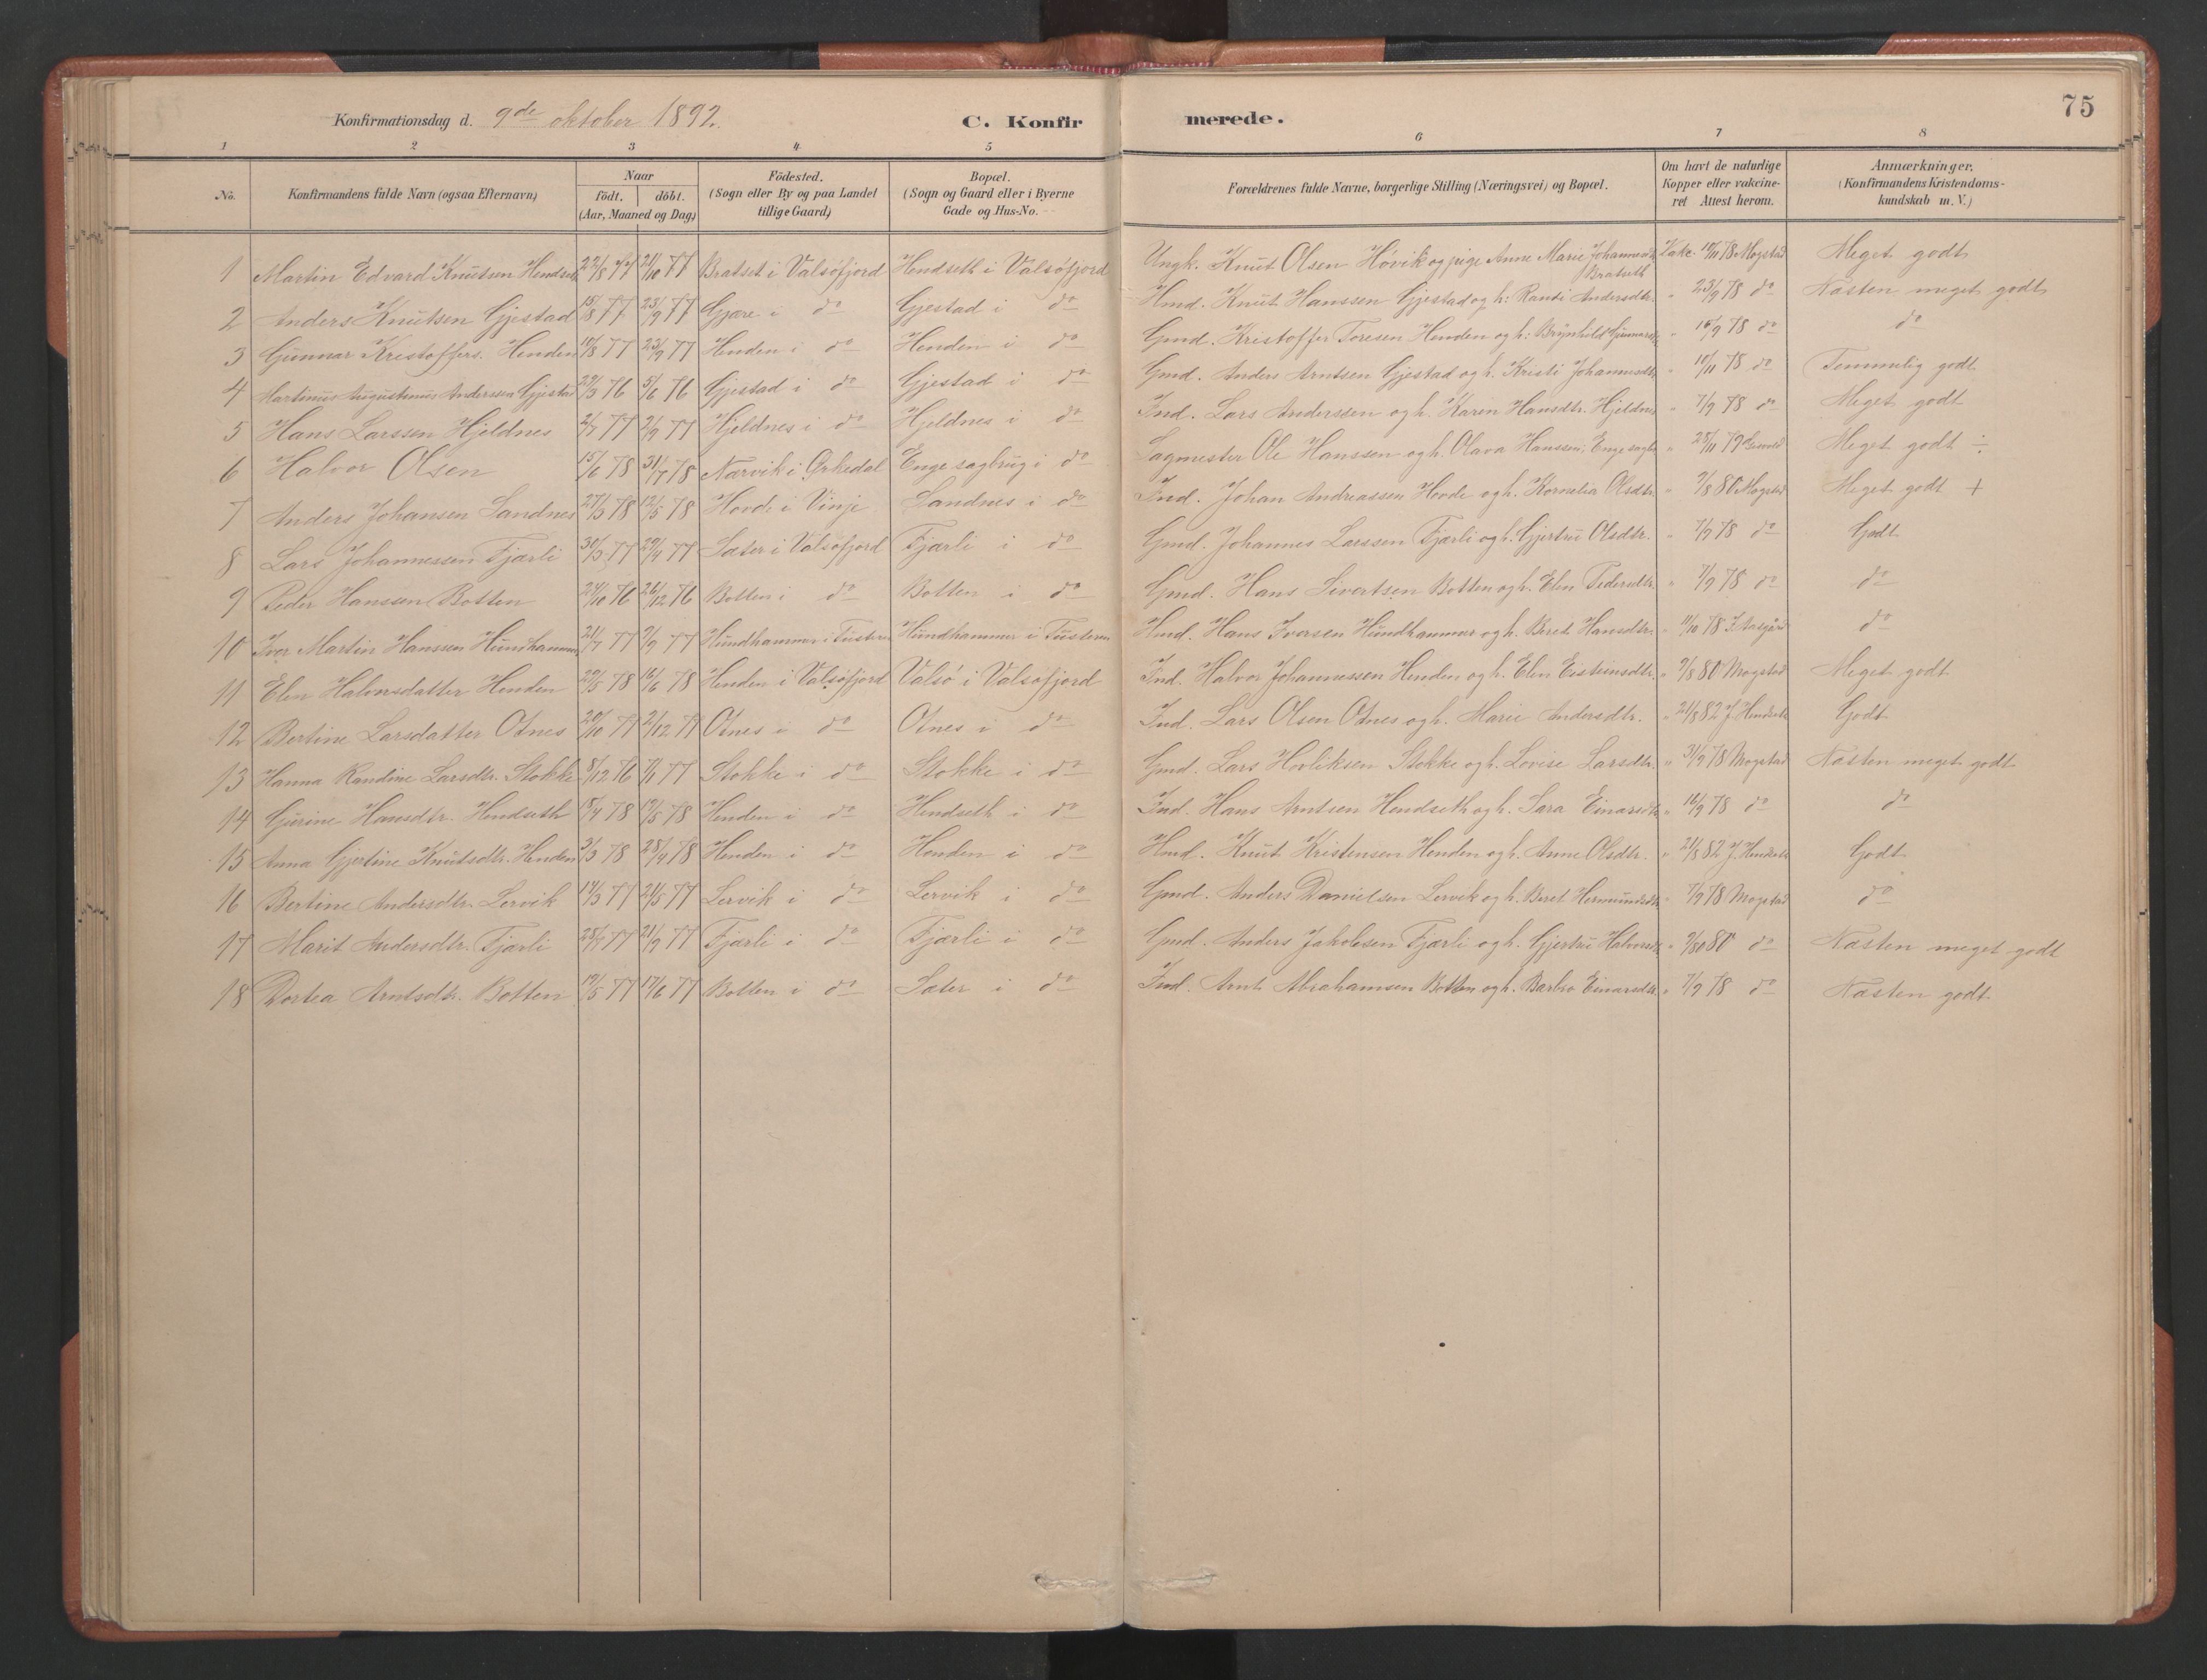 75
Konfirmationsdag d. 9de oktober 1892.
C. Konfirmerede.
1 2 3 4 5 6 7 8
No.
Konfirmandens fulde Navn (ogsaa Efternavn)
Naar
födt. döbt.
(Aar, Maaned og Dag)
Födested.
(Sogn eller By og paa Landet
tillige Gaard)
Bopæl.
(Sogn og Gaard eller i Byerne
Gade og Hus-No.
Forældrenes fulde Navne, borgerlige Stilling (Næringsvei) og Bopæl.
Om havt de naturlige
Kopper eller vakcine-
ret Attest herom.
Anmærkninger.
(Konfirmandens Kristendoms-
kundskab m. V.)
1 Martin Edvard Knutsen Hendset 22/8 77 21/10 77 Bratset i Valsöfjord Hendseth i Valsöfjord Ungk. Knut Olsen Høvik og pige Anne Marie Johannesdtr. Bratseth Vakc. 10/11 78 Mogstad Meget godt
2 Anders Knutsen Gjestad 15/8 77 23/9 77 Gjøre i do Gjestad i do Hmd. Knut Hanssen Gjestad og h: Randi Andersdtr. " 23/9 78 do Næsten meget godt
3 Gunnar Kristoffers. Henden 19/8 77 23/9 77 Henden i do Henden i do Gmd. Kristoffer Toresen Henden og h: Brynhild Gunnarsdtr " 16/9 78 do do
4 Martinus Augustinus Anderssen Gjestad 29/3 76 5/6 76 Gjestad i do Gjestad i do Gmd. Anders Arntsen Gjestad og h. Kristi Johannesdtr " 10/11 78 do Temmelig godt
5 Hans Larssen Hjeldnes 2/7 77 2/9 77 Hjeldnes i do Hjeldnes i do Ind. Lars Anderssen og h. Karen Hansdtr. Hjeldnes " 7/9 78 do Meget godt
6 Halvor Olsen 15/6 78 31/7 78 Nærvik i Orkedal Enge sagbrug i do Sagmester Ole Hanssen og h. Olava Hanssen, Enge sagbr " 28/11 79 Meget godt ÷
7 Anders Johansen Sandnes 27/3 78 12/5 78 Hovde i Vinje Sandnes i do Ind. Johan Andreassen Hovde og h. Kornelia Olsdtr. " 9/8 80 Mogstad Meget godt +
8 Lars Johannessen Fjærli 30/3 77 29/4 77 Sæter i Valsöfjord Fjærli i do Gmd. Johannes Larssen Fjærli og h. Gjertru Olsdtr. " 7/9 78 do Godt
9 Peder Hanssen Botten 24/10 76 26/12 76 Botten i do Botten i do Gmd. Hans Sivertsen Botten og h. Elen Pedersdtr. " 7/9 78 do do
10 Iver Martin Hanssen Hundhammer 21/7 77 9/9 77 Hundhammer i Tusteren Hundhammer i Tusteren Hmd. Hans Iversen Hundhammer og h. Beret Hansdtr. " 11/10 78 do
11 Elen Halvorsdatter Henden 29/5 78 16/6 78 Henden i Valsöfjord Valsö i Valsöfjord Ind. Halvor Johannessen Henden og h. Elen Eisteinsdtr. " 9/8 80 Mogstad Meget godt
12 Bertine Larsdatter Otnes 20/10 77 2/12 77 Otnes i do Otnes i do Ind. Lars Olsen Otnes og h. Marie Andersdtr. " 21/8 82 J. Hendseth Godt
13 Hanna Randine Larsdtr. Stokke 8/12 76 7/1 77 Stokke i do Stokke i do Gmd. Lars Hovliksen Stokke og h. Lovise Larsdtr. " 3/9 78 Mogstad Næsten meget godt
14 Gurine Hansdtr. Hendseth 15/4 78 19/5 78 Henden i do Hendseth i do Ind. Hans Arntsen Hendseth og h. Sara Einarsdtr " 16/9 78 do do
15 Anna Gjertine Knutsdtr. Henden 3/3 78 28/4 78 Henden i do Henden i do Hmd. Knut Kristensen Henden og h. Anne Olsdtr. " 21/8 82 J. Hendseth Godt
16 Bertine Andersdtr. Lervik 14/3 77 21/5 77 Lervik i do Lervik i do Gmd. Anders Danielsen Lervik og h. Beret Hermundsdtr " 7/9 78 Mogstad do
17 Marit Andersdtr. Fjærli 25/7 77 21/9 77 Fjærli i do Fjærli i do Gmd. Anders Jakobsen Fjærli og h. Gjertru Halvorsdtr " 80 do Næsten meget godt
18 Dortea Arntsdtr. Botten 19/5 77 17/6 77 Botten i do Sæter i do Ind. Arnt Abrahamsen Botten og h. Barbro Einarsdtr. " 7/9 78 do Næsten godt